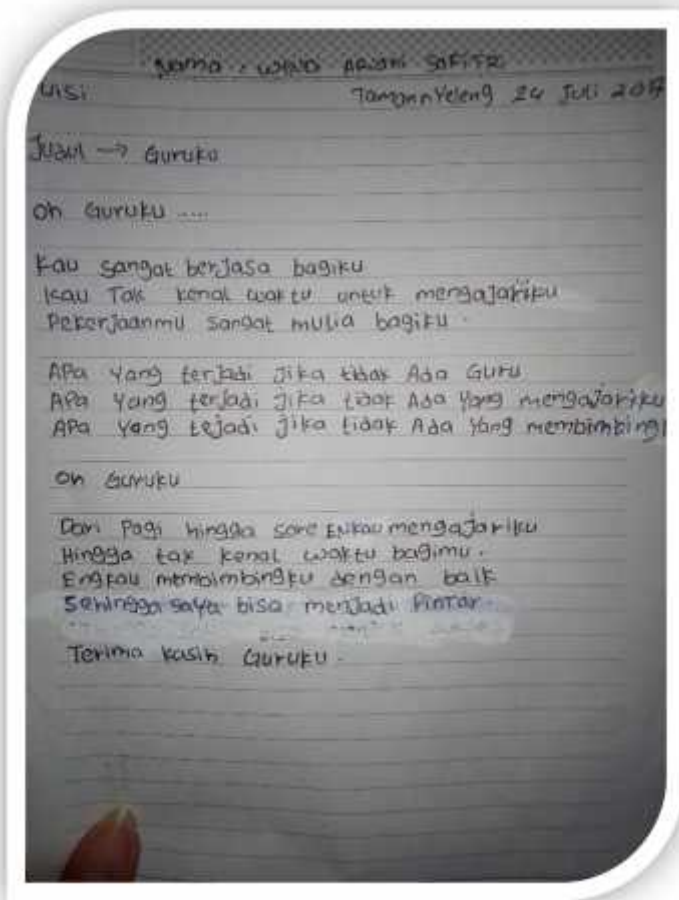 Nama : WIND ARIANI SAFITRI
uisi
Tamannyeleng 24 Juli 2017
Judul → Guruku
Oh Guruku .....
Kau sangat berjasa bagiku
Kau Tak kenal waktu untuk mengajariku
Pekerjaanmu sangat mulia bagiku.
APa Yang terjadi Jika tidak Ada Guru
APa Yang terjadi Jika tidak Ada Yang mengajariku
APa Yang tejadi Jika tidak Ada Yang membimbing
Oh Guruku
Dari Pagi hingga sore Enkau mengajariku
Hingga tak kenal waktu bagimu.
Engkau membimbingku dengan baik
Sehingga saya bisa menjadi Pintar.
Terima kasih Guruku.